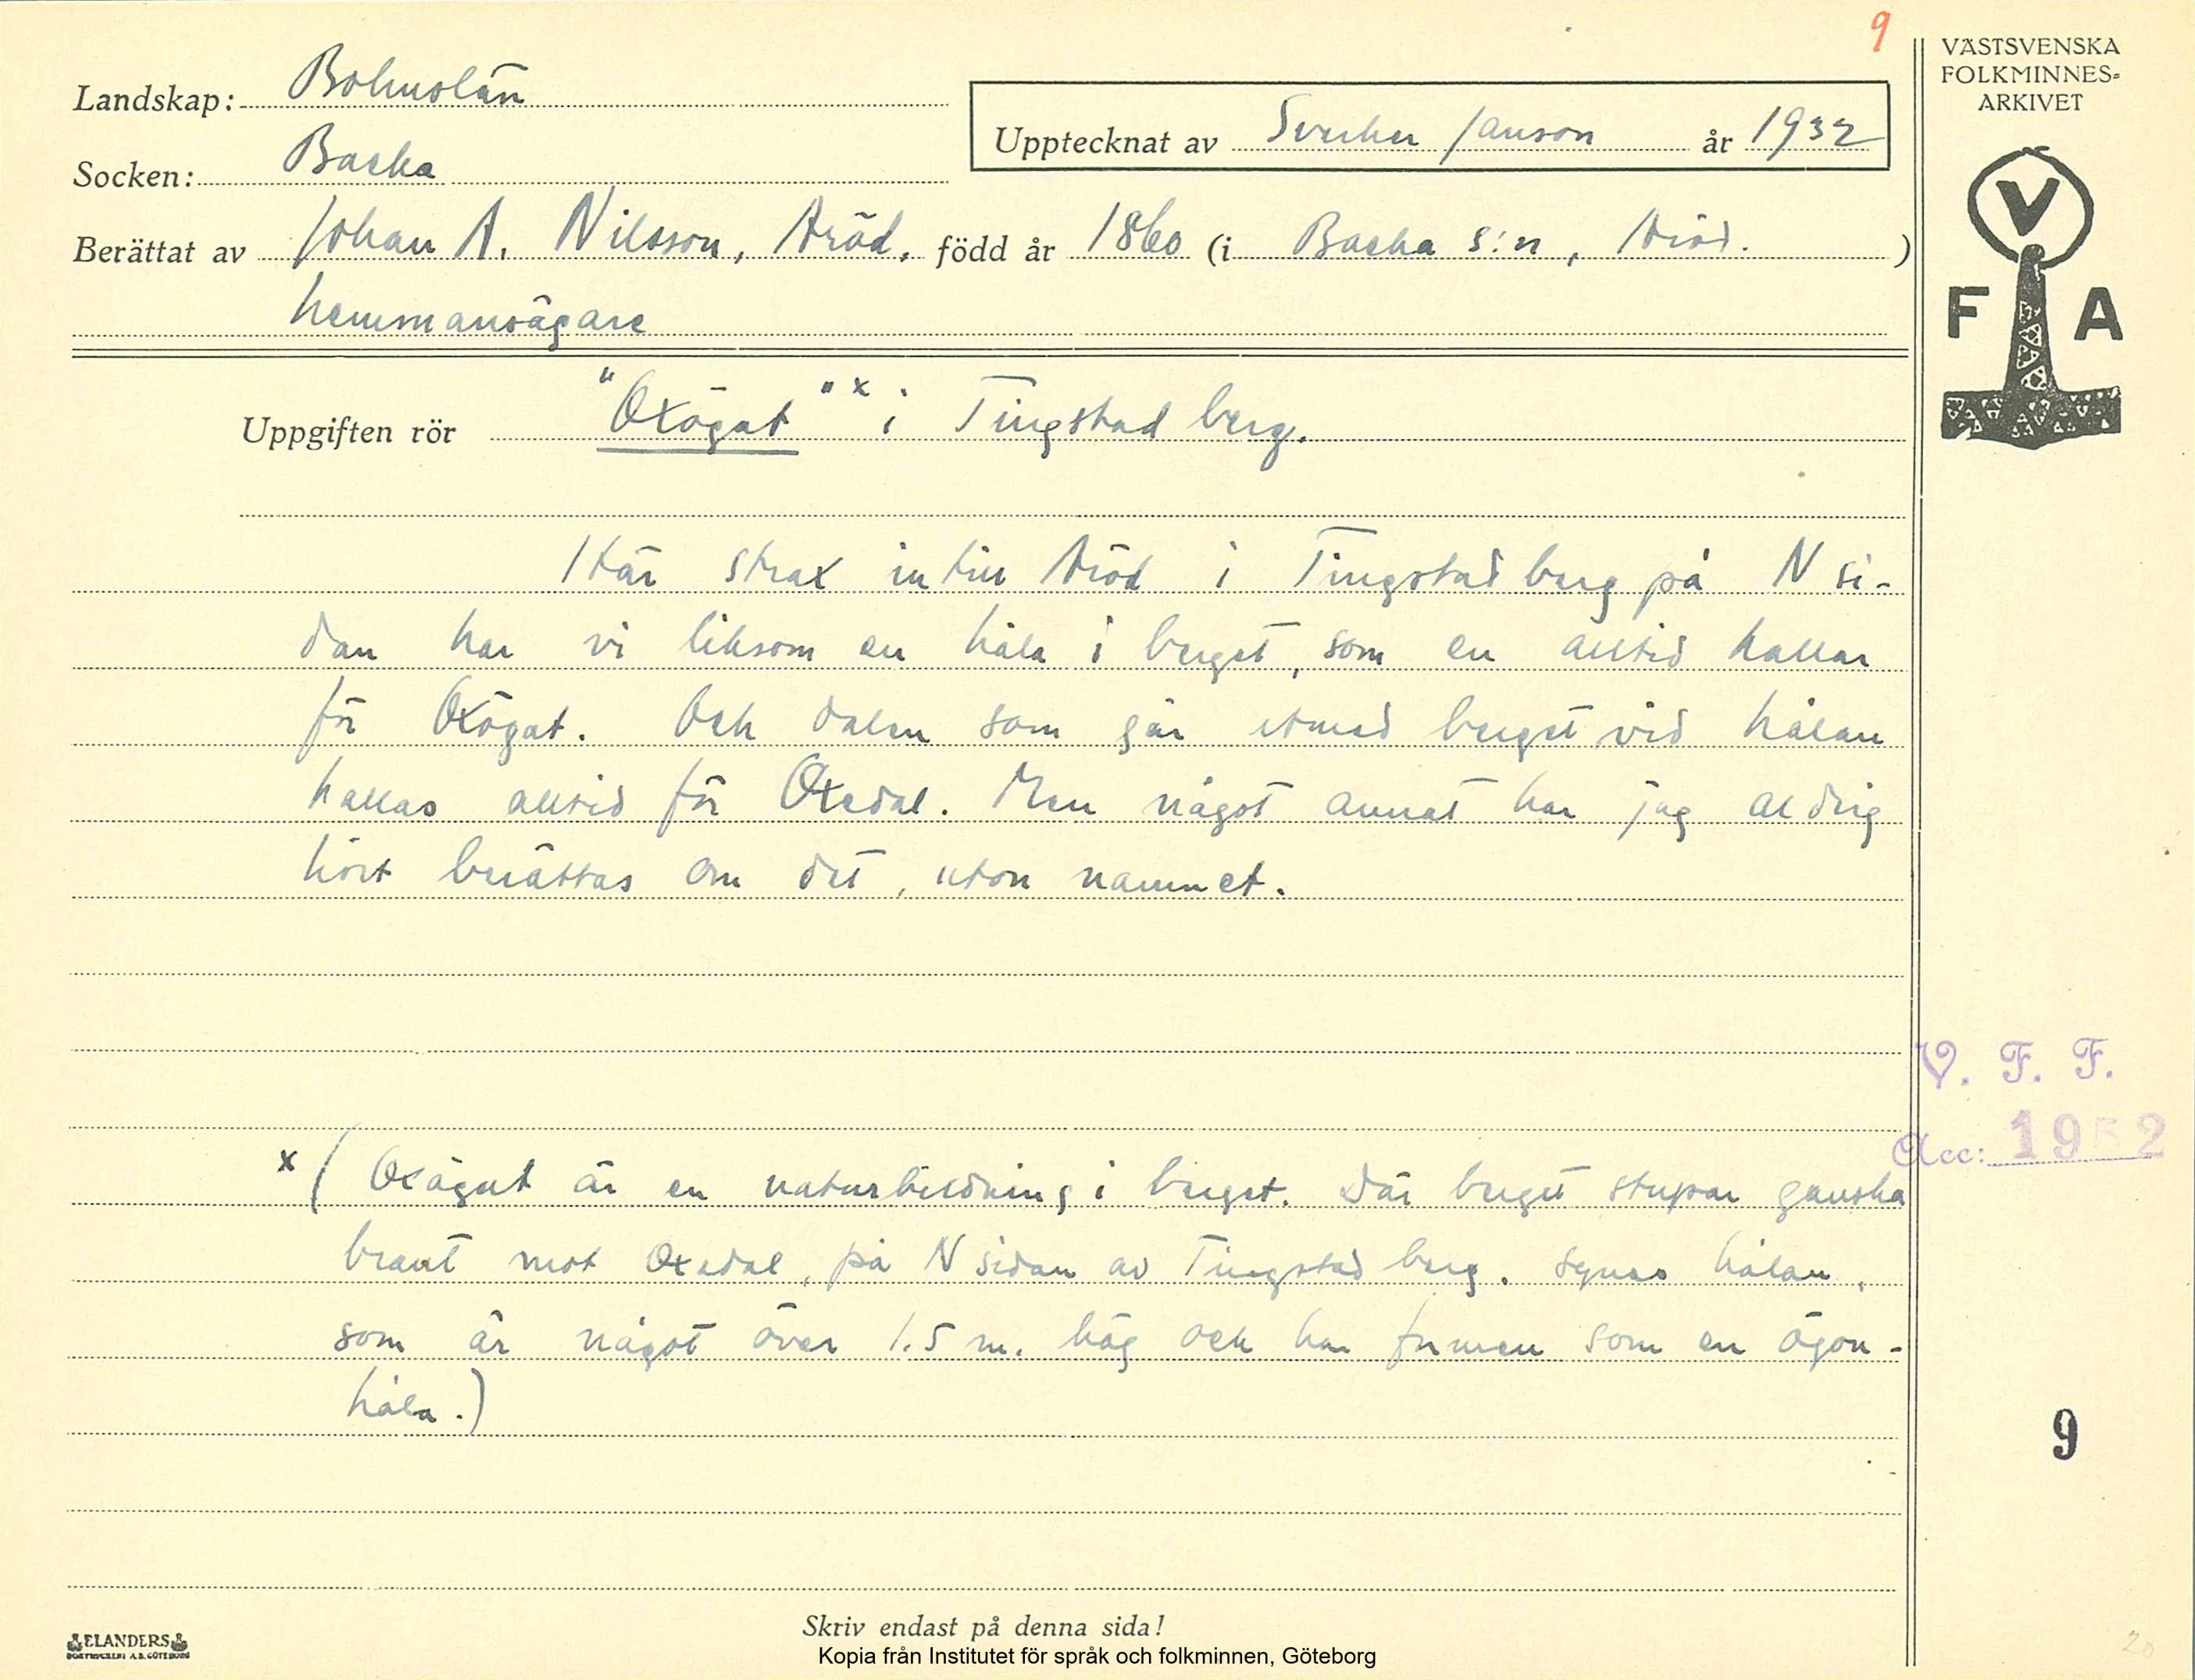 9
VÄSTSVENSKA
FOLKMINNES-
ARKIVET
Landskap: Bohuslän
Upptecknat av Sverker Janson år 1932
Socken: Backa
Berättat av Johan A. Nilsson, Aröd, född år 1860 (i Backa s:n, Aröd.)
hemmansägare
V
F A
Uppgiften rör "Oxögat" x i Tingstad berg.
Här strax intill Aröd i Tingstad berg på N si-
dan har vi liksom en håla i berget, som en alltid kallar
för Oxögat. Och dalen som går utmed berget vid hålan
kallas alltid för Oxedal. Men något annat har jag aldrig
hört berättas om det, uton namnet.
V. F. F.
Acc: 1952
x (Oxögat är en naturbildning i berget. Där berget stupar ganska
brant mot Oxedal, på N sidan av Tingstad berg. synes hålan,
som är något över 1.5 m. hög och har formen som en ögon-
håla.)
9
Skriv endast på denna sida!
ELANDERS
BOKTRYCKERI A.B. GÖTEBORG
Kopia från Institutet för språk och folkminnen, Göteborg
20